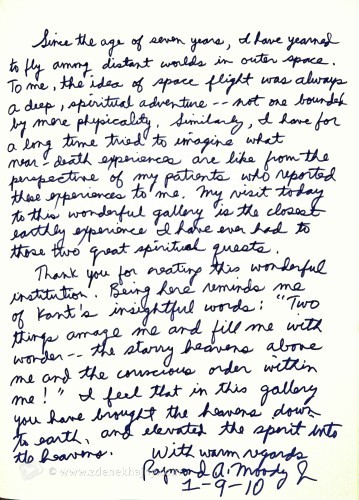 Since the age of seven years, I have yearned
to fly among distant worlds in outer space.
To me, the idea of space flight was always
a deep, spiritual adventure -- not one bounded
by mere physicality. Similarly, I have for
a long time tried to imagine what
near-death experiences are like from the
perspective of my patients who reported
these experiences to me. My visit today
to this wonderful gallery is the closest
earthly experience I have ever had to
those two great spiritual quests.
Thank you for creating this wonderful
institution. Being here reminds me
of Kant's insightful words: "Two
things amaze me and fill me with
wonder -- the starry heavens above
me and the conscious order within
me!" I feel that in this gallery
you have brought the heavens down
to earth, and elevated the spirit into
the heavens.
With warm regards
Raymond A. Moody Jr
1-9-10